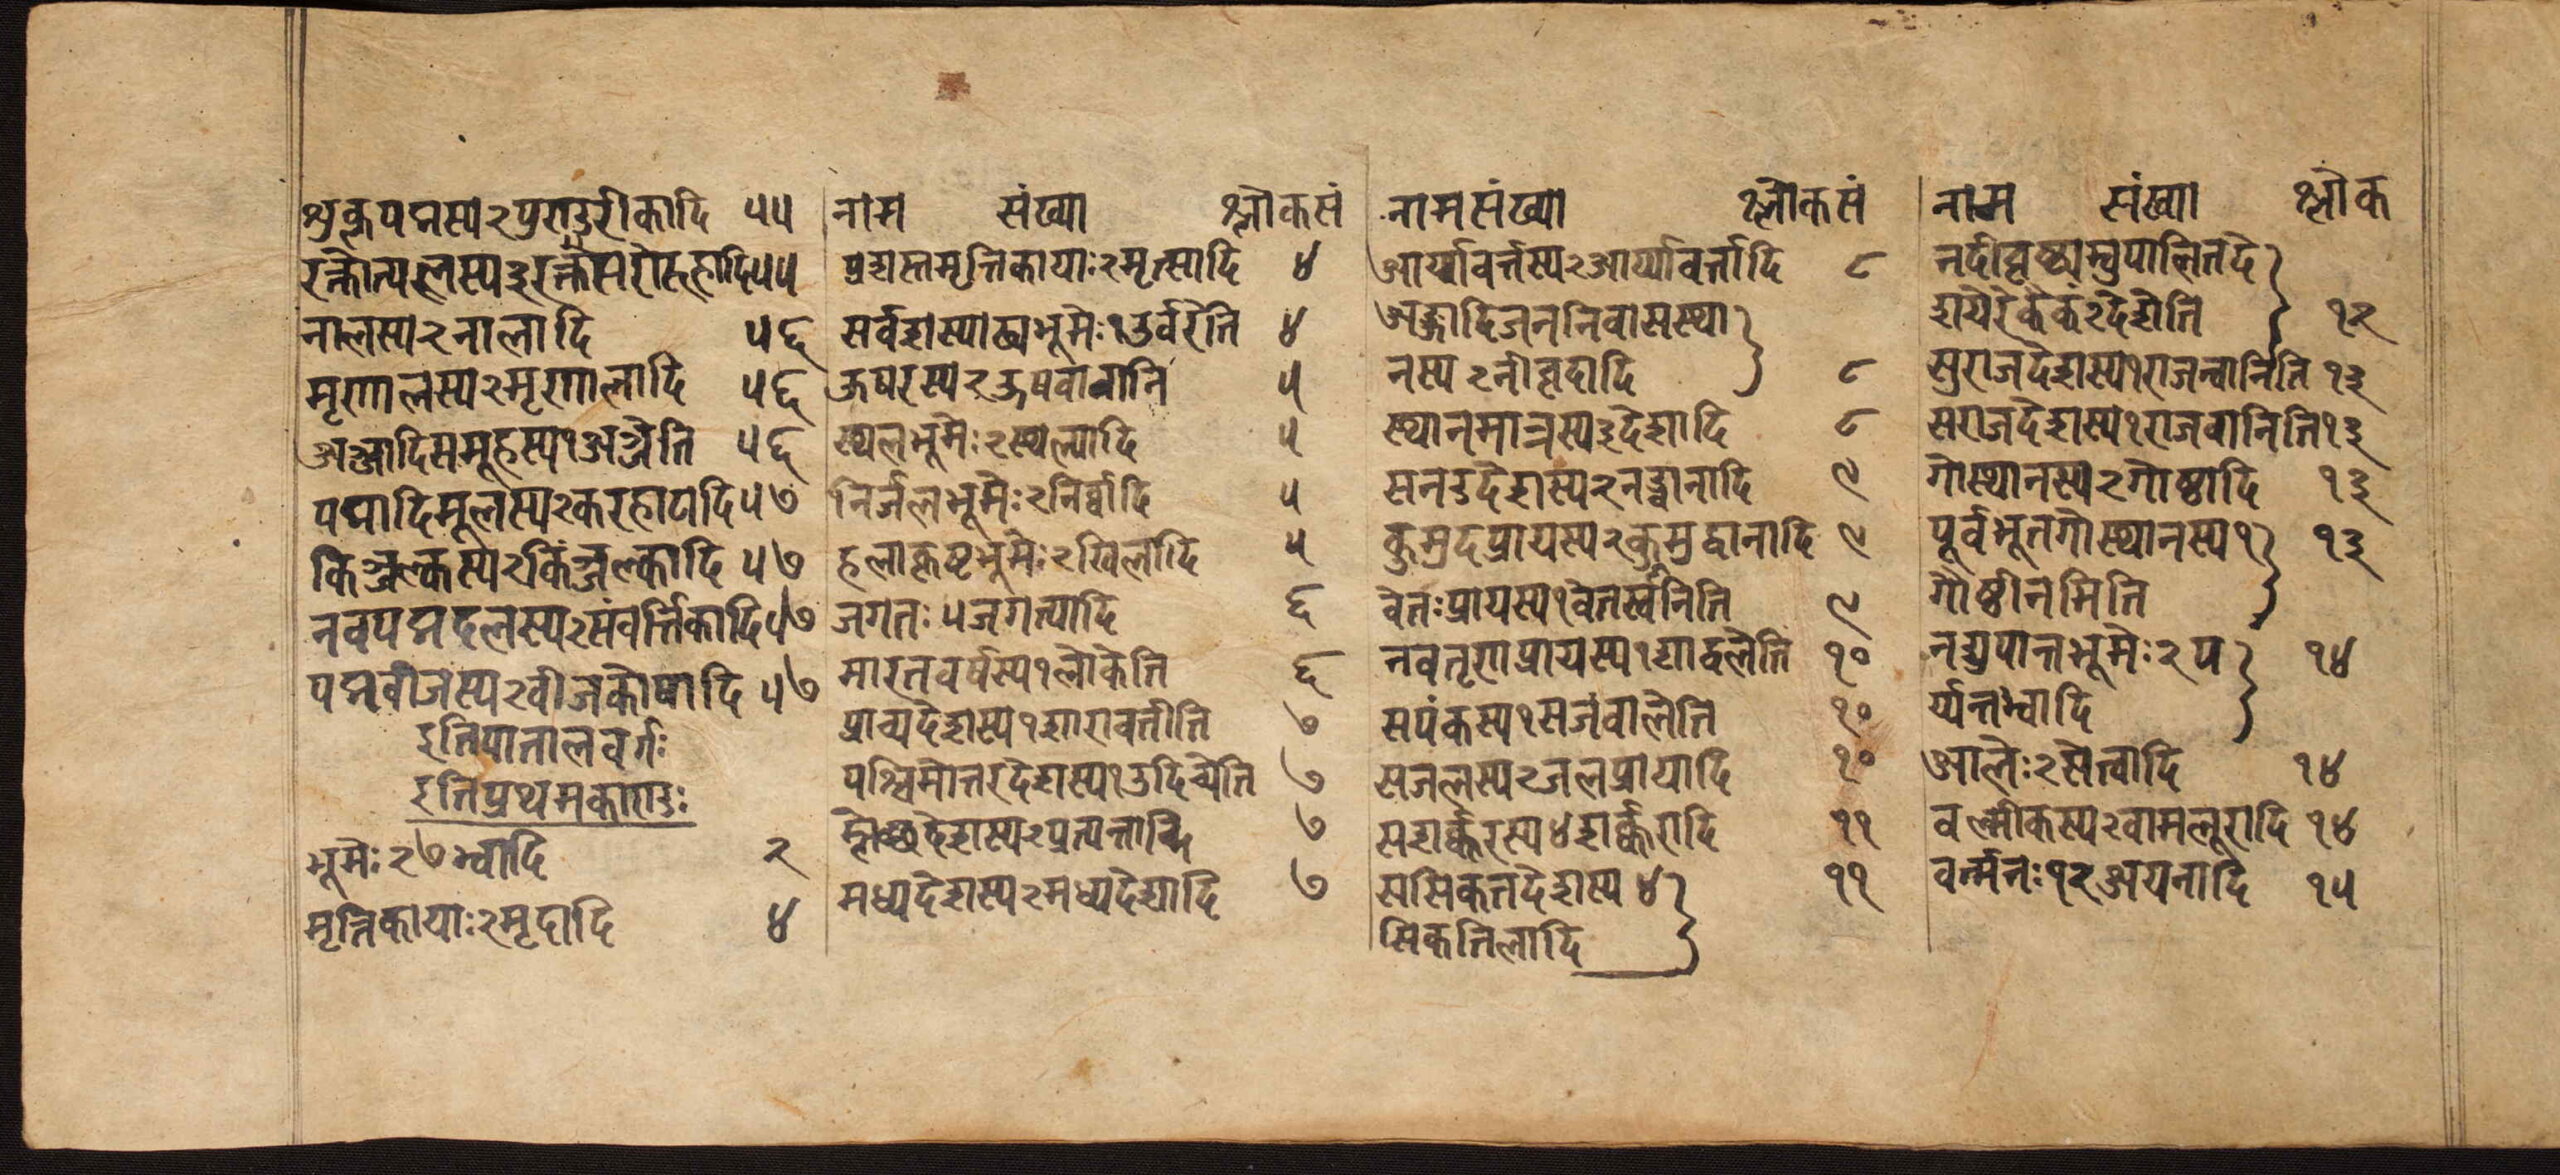 शुक्लपद्मस्य२पुण्डरीकादि ५५
रक्तोत्पलस्य३रक्तसरोरुहादि५५
नालस्य२नालादि ५६
मृणालस्य२मृणालादि ५६
अब्जादिसमूहस्य१अब्जेति ५६
पद्मादिमूलस्य२करहाटादि५७
किञ्जल्कस्य२किंञ्जल्कादि ५७
नवपद्मदलस्य२संवर्त्तिकादि५७
पद्मवीजस्य२वीजकोषादि ५७
इतिपातालवर्गः
इतिप्रथमकाण्डः
भूमेः२७भ्वादि २
मृत्तिकायाः२मृदादि ४
नाम संख्या श्लोकसं
प्रशस्तमृत्तिकायाः२मृत्सादि ४
सर्वशस्याढ्यभूमेः१उर्वरेति ४
ऊषरस्य२ऊषवावानि ५
स्थलभूमेः२स्थल्यादि ५
निर्जलभूमेः२निर्वादि ५
हलाकृष्टभूमेः२खिलादि ५
जगतः५जगत्यादि ६
भारतवर्षस्य१लोकेति ६
प्राच्यदेशस्य१शारावतीति ७
पश्चिमोत्तरदेशस्य१उदिच्येति ७
म्लेच्छदेशस्य२प्रत्यन्तादि ७
मध्यदेशस्य२मध्यदेशादि ७
नामसंख्या श्लोकसं
आर्य्यावर्त्तस्य२आर्य्यावर्त्तादि ८
अङ्गादिजननिवासस्था
नस्य२नीवृदादि ८
स्थानमात्रस्य३देशादि ८
सनडदेशस्य२नड्वानादि ९
कुमुदप्रायस्य२कुमुद्वानादि ९
वेतःप्रायस्य१वेतस्वनिति ९
नवतृणप्रायस्य१शाद्वलेति १०
सपंकस्य१सजंवालेति १०
सजलस्य२जलप्रायादि १०
सशर्क्करस्य४शर्क्करादि ११
ससिकतदेशस्य४ ११
सिकतिलादि
नाम संख्या श्लोक
नदीवृष्ट्यम्बुपालितदे
शयोरेकैकं२देशेति १२
सुराजदेशस्य१राजन्वानिति १३
सराजदेशस्य१राजवानिति१३
गोस्थानस्य२गोष्ठादि १३
पूर्वभूतगोस्थानस्य१ १३
गौष्ठीनमिति
नद्युपान्तभूमेः२प १४
र्य्यन्तभ्वादि
आलेः२सेत्वादि १४
वल्मीकस्य२वामलूरादि १४
वर्त्मनः१२अयनादि १५